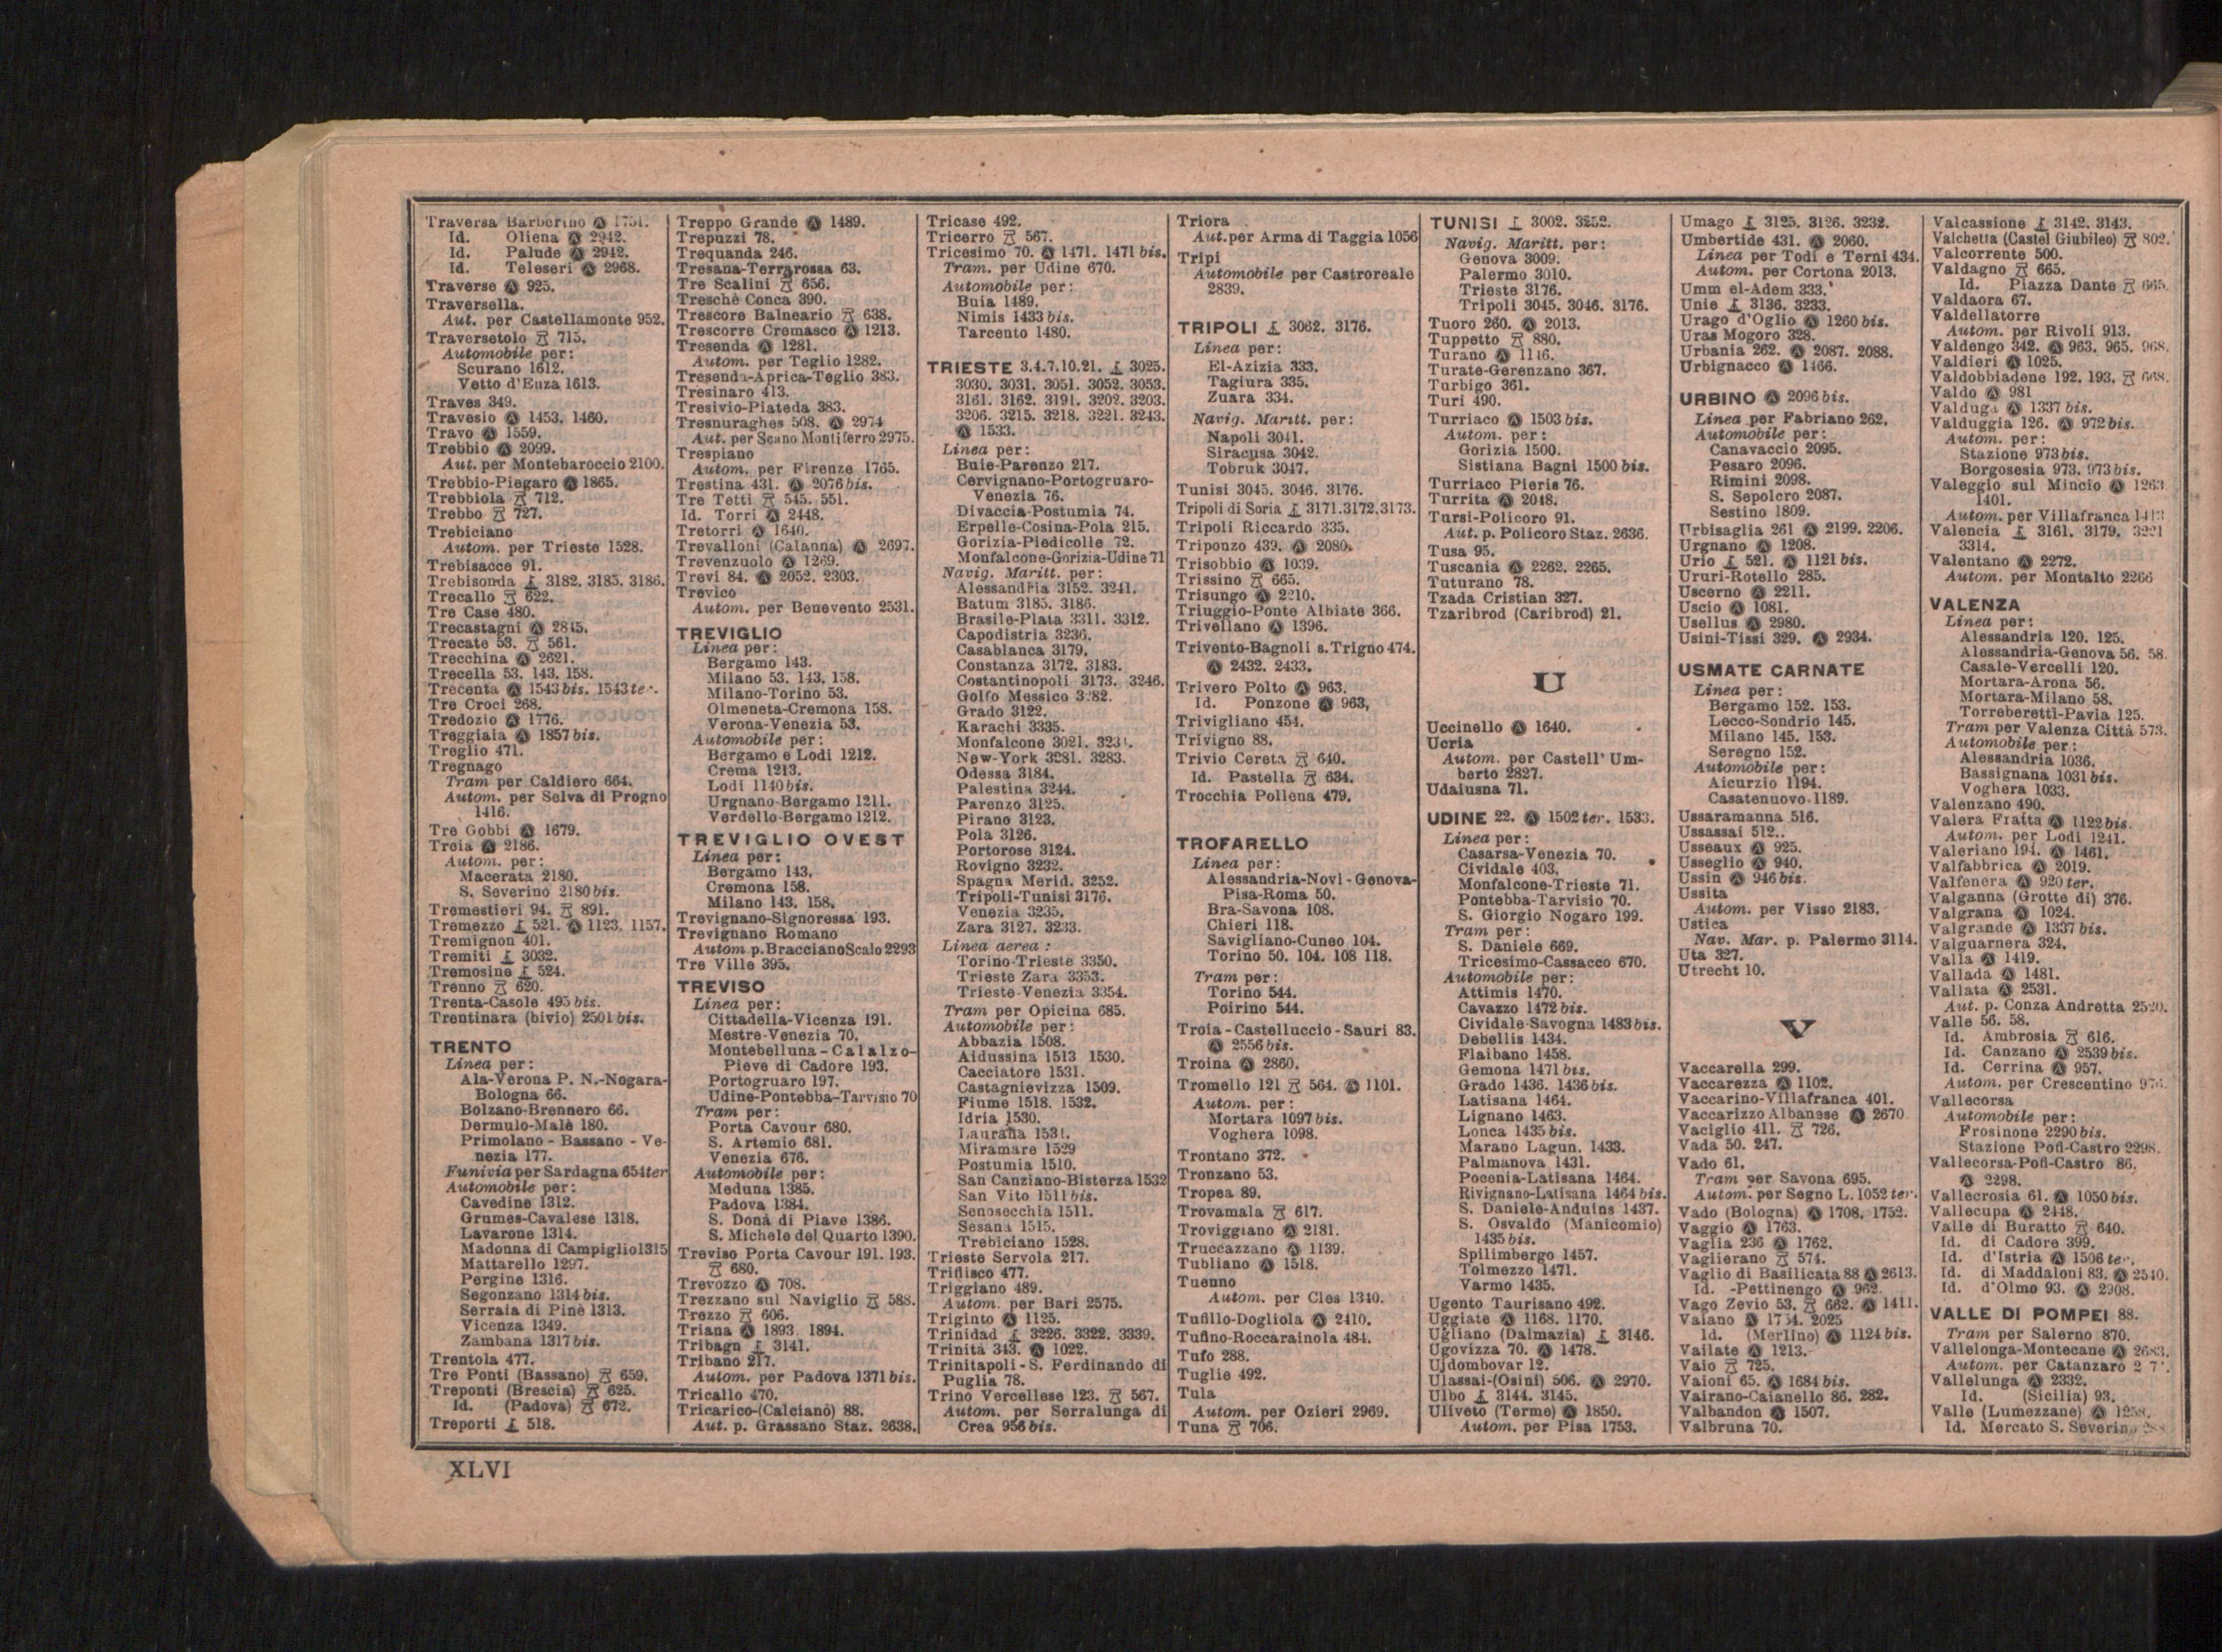 Traversa Barberino Ⓐ 1751.
Id. Oliena Ⓐ 2942.
Id. Palude Ⓐ 2942.
Id. Teleseri Ⓐ 2968.
Traverse Ⓐ 925.
Traversella.
Aut. per Castellamonte 952.
Traversetolo 715.
Automobile per:
Scurano 1612.
Vetto d'Enza 1613.
Traves 349.
Travesio Ⓐ 1453. 1460.
Travo Ⓐ 1559.
Trebbio Ⓐ 2099.
Aut. per Montebaroccio 2100.
Trebbio-Piegaro Ⓐ 1865.
Trebbiola 712.
Trebbo 727.
Trebiciano
Autom. per Trieste 1528.
Trebisacce 91.
Trebisonda 3182. 3185. 3186.
Trecallo 622.
Tre Case 480.
Trecastagni Ⓐ 2845.
Trecate 53. 561.
Trecchina Ⓐ 2621.
Trecella 53. 143. 158.
Trecenta Ⓐ 1543 bis. 1543 ter.
Tre Croci 268.
Tredozio Ⓐ 1776.
Treggiaia Ⓐ 1857 bis.
Treglio 471.
Tregnago
Tram per Caldiero 664.
Autom. per Selva di Progno
1416.
Tre Gobbi Ⓐ 1679.
Treia Ⓐ 2186.
Autom. per:
Macerata 2180.
S. Severino 2180 bis.
Tremestieri 94. 891.
Tremezzo 521. Ⓐ 1123. 1157.
Tremignon 401.
Tremiti 3032.
Tremosine 524.
Trenno 620.
Trenta-Casole 495 bis.
Trentinara (bivio) 2501 bis.
TRENTO
Linea per:
Ala-Verona P. N.-Nogara-
Bologna 66.
Bolzano-Brennero 66.
Dermulo-Malè 180.
Primolano - Bassano - Ve-
nezia 177.
Funivia per Sardagna 654 ter
Automobile per:
Cavedine 1312.
Grumes-Cavalese 1318.
Lavarone 1314.
Madonna di Campiglio 1315
Mattarello 1297.
Pergine 1316.
Segonzano 1314 bis.
Serraia di Pinè 1313.
Vicenza 1349.
Zambana 1317 bis.
Trentola 477.
Tre Ponti (Bassano) 659.
Treponti (Brescia) 625.
Id. (Padova) 672.
Treporti 518.
Treppo Grande Ⓐ 1489.
Trepuzzi 78.
Trequanda 246.
Tresana-Terrarossa 63.
Tre Scalini 656.
Treschè Conca 390.
Trescore Balneario 638.
Trescorre Cremasco Ⓐ 1213.
Tresenda Ⓐ 1281.
Autom. per Teglio 1282.
Tresenda-Aprica-Teglio 383.
Tresinaro 413.
Tresivio-Piateda 383.
Tresnuraghes 508. Ⓐ 2974
Aut. per Scano Montiferro 2975.
Trespiano
Autom. per Firenze 1765.
Trestina 431. Ⓐ 2076 bis.
Tre Tetti 545. 551.
Id. Torri Ⓐ 2448.
Tretorri Ⓐ 1640.
Trevalloni (Calanna) Ⓐ 2697.
Trevenzuolo Ⓐ 1269.
Trevi 84. Ⓐ 2052. 2303.
Trevico
Autom. per Benevento 2531.
TREVIGLIO
Linea per:
Bergamo 143.
Milano 53. 143. 158.
Milano-Torino 53.
Olmeneta-Cremona 158.
Verona-Venezia 53.
Automobile per:
Bergamo e Lodi 1212.
Crema 1213.
Lodi 1140 bis.
Urgnano-Bergamo 1211.
Verdello-Bergamo 1212.
TREVIGLIO OVEST
Linea per:
Bergamo 143.
Cremona 158.
Milano 143. 158.
Trevignano-Signoressa 193.
Trevignano Romano
Autom p. Bracciano Scalo 2293
Tre Ville 395.
TREVISO
Linea per:
Cittadella-Vicenza 191.
Mestre-Venezia 70.
Montebelluna - Calalzo-
Pieve di Cadore 193.
Portogruaro 197.
Udine-Pontebba-Tarvisio 70
Tram per:
Porta Cavour 680.
S. Artemio 681.
Venezia 676.
Automobile per:
Meduna 1385.
Padova 1384.
S. Donà di Piave 1386.
S. Michele del Quarto 1390.
Treviso Porta Cavour 191. 193.
680.
Trevozzo Ⓐ 708.
Trezzano sul Naviglio 588.
Trezzo 606.
Triana Ⓐ 1893. 1894.
Tribagn 3141.
Tribano 217.
Autom. per Padova 1371 bis.
Tricallo 470.
Tricarico-(Calciano) 88.
Aut. p. Grassano Staz. 2638.
Tricase 492.
Tricerro 567.
Tricesimo 70. Ⓐ 1471. 1471 bis.
Tram. per Udine 670.
Automobile per:
Buia 1489.
Nimis 1433 bis.
Tarcento 1480.
TRIESTE 3.4.7.10.21. 3025.
3030. 3031. 3051. 3052. 3053.
3161. 3162. 3191. 3202. 3203.
3206. 3215. 3218. 3221. 3243.
Ⓐ 1533.
Linea per:
Buie-Parenzo 217.
Cervignano-Portogruaro-
Venezia 76.
Divaccia-Postumia 74.
Erpelle-Cosina-Pola 215.
Gorizia-Piedicolle 72.
Monfalcone-Gorizia-Udine 71
Navig. Maritt. per:
Alessandria 3152. 3241.
Batum 3185. 3186.
Brasile-Plata 3311. 3312.
Capodistria 3236.
Casablanca 3179.
Constanza 3172. 3183.
Costantinopoli 3173. 3246.
Golfo Messico 3282.
Grado 3122.
Karachi 3335.
Monfalcone 3021.
New-York 3281. 3283.
Odessa 3184.
Palestina 3244.
Parenzo 3125.
Pirano 3123.
Pola 3126.
Portorose 3124.
Rovigno 3232.
Spagna Merid. 3252.
Tripoli-Tunisi 3176.
Venezia 3235.
Zara 3127. 3233.
Linea aerea:
Torino-Trieste 3350.
Trieste Zara 3353.
Trieste-Venezia 3354.
Tram per Opicina 685.
Automobile per:
Abbazia 1508.
Aidussina 1513 1530.
Cacciatore 1531.
Castagnievizza 1509.
Fiume 1518. 1532.
Idria 1530.
Laurana 1531.
Miramare 1529
Postumia 1510.
San Canziano-Bisterza 1532
San Vito 1511 bis.
Senosecchia 1511.
Sesana 1515.
Trebiciano 1528.
Trieste Servola 217.
Triflisco 477.
Triggiano 489.
Autom. per Bari 2575.
Triginto Ⓐ 1125.
Trinidad 3226. 3322. 3339.
Trinità 343. Ⓐ 1022.
Trinitapoli - S. Ferdinando di
Puglia 78.
Trino Vercellese 123. 567.
Autom. per Serralunga di
Crea 956 bis.
Triora
Aut. per Arma di Taggia 1056
Tripi
Automobile per Castroreale
2839.
TRIPOLI 3062. 3176.
Linea per:
El-Azizia 333.
Tagiura 335.
Zuara 334.
Navig. Maritt. per:
Napoli 3041.
Siracusa 3042.
Tobruk 3047.
Tunisi 3045. 3046. 3176.
Tripoli di Soria 3171.3172.3173.
Tripoli Riccardo 335.
Triponzo 439. Ⓐ 2080.
Trisobbio Ⓐ 1039.
Trissino 665.
Trisungo Ⓐ 2210.
Triuggio-Ponte Albiate 366.
Trivellano Ⓐ 1396.
Trivento-Bagnoli s. Trigno 474.
Ⓐ 2432. 2433.
Trivero Polto Ⓐ 963.
Id. Ponzone Ⓐ 963,
Trivigliano 454.
Trivigno 88.
Trivio Cereta 640.
Id. Pastella 634.
Trocchia Pollena 479.
TROFARELLO
Linea per:
Alessandria-Novi-Genova-
Pisa-Roma 50.
Bra-Savona 108.
Chieri 118.
Savigliano-Cuneo 104.
Torino 50. 104. 108 118.
Tram per:
Torino 544.
Poirino 544.
Troia - Castelluccio - Sauri 83.
Ⓐ 2556 bis.
Troina Ⓐ 2860.
Tromello 121 564. Ⓐ 1101.
Autom. per:
Mortara 1097 bis.
Voghera 1098.
Trontano 372.
Tronzano 53.
Tropea 89.
Trovamala 617.
Troviggiano Ⓐ 2181.
Truccazzano Ⓐ 1139.
Tubliano Ⓐ 1518.
Tuenno
Autom. per Cles 1340.
Tufillo-Dogliola Ⓐ 2410.
Tufino-Roccarainola 484.
Tufo 288.
Tuglie 492.
Tula
Autom. per Ozieri 2969.
Tuna 706.
TUNISI 3002. 3252.
Navig. Maritt. per:
Genova 3009.
Palermo 3010.
Trieste 3176.
Tripoli 3045. 3046. 3176.
Tuoro 260. Ⓐ 2013.
Tuppetto 880.
Turano Ⓐ 1116.
Turate-Gerenzano 367.
Turbigo 361.
Turi 490.
Turriaco Ⓐ 1503 bis.
Autom. per:
Gorizia 1500.
Sistiana Bagni 1500 bis.
Turriaco Pieris 76.
Turrita Ⓐ 2048.
Tursi-Policoro 91.
Aut. p. Policoro Staz. 2636.
Tusa 95.
Tuscania Ⓐ 2262. 2265.
Tuturano 78.
Tzada Cristian 327.
Tzaribrod (Caribrod) 21.
U
Uccinello Ⓐ 1640.
Ucria
Autom. per Castell' Um-
berto 2827.
Udalusna 71.
UDINE 22. Ⓐ 1502 ter. 1533.
Linea per:
Casarsa-Venezia 70.
Cividale 403.
Monfalcone-Trieste 71.
Pontebba-Tarvisio 70.
S. Giorgio Nogaro 199.
Tram per:
S. Daniele 669.
Tricesimo-Cassacco 670.
Automobile per:
Attimis 1470.
Cavazzo 1472 bis.
Cividale-Savogna 1483 bis.
Debellis 1434.
Flaibano 1458.
Gemona 1471 bis.
Grado 1436. 1436 bis.
Latisana 1464.
Lignano 1463.
Lonca 1435 bis.
Marano Lagun. 1433.
Palmanova 1431.
Pocenia-Latisana 1464.
Rivignano-Latisana 1464 bis.
S. Daniele-Anduins 1437.
S. Osvaldo (Manicomio)
1435 bis.
Spilimbergo 1457.
Tolmezzo 1471.
Varmo 1435.
Ugento Taurisano 492.
Uggiate Ⓐ 1168. 1170.
Ugliano (Dalmazia) 3146.
Ugovizza 70. Ⓐ 1478.
Ujdombovar 12.
Ulassai-(Osini) 506. Ⓐ 2970.
Ulbo 3144. 3145.
Uliveto (Terme) Ⓐ 1850.
Autom. per Pisa 1753.
Umago 3125. 3126. 3232.
Umbertide 431. Ⓐ 2060.
Linea per Todi e Terni 434.
Autom. per Cortona 2013.
Umm el-Adem 333.
Unie 3136. 3233.
Urago d'Oglio Ⓐ 1260 bis.
Uras Mogoro 328.
Urbania 262. Ⓐ 2087. 2088.
Urbignacco Ⓐ 1466.
URBINO Ⓐ 2096 bis.
Linea per Fabriano 262.
Automobile per:
Canavaccio 2095.
Pesaro 2096.
Rimini 2098.
S. Sepolcro 2087.
Sestino 1809.
Urbisaglia 261 Ⓐ 2199. 2206.
Urgnano Ⓐ 1208.
Urio 521. Ⓐ 1121 bis.
Ururi-Rotello 285.
Uscerno Ⓐ 2211.
Uscio Ⓐ 1081.
Usellus Ⓐ 2980.
Usini-Tissi 329. Ⓐ 2934.
USMATE CARNATE
Linea per:
Bergamo 152. 153.
Lecco-Sondrio 145.
Milano 145. 153.
Seregno 152.
Automobile per:
Aicurzio 1194.
Casatenuovo 1189.
Ussaramanna 516.
Ussassai 512..
Usseaux Ⓐ 925.
Usseglio Ⓐ 940.
Ussin Ⓐ 946 bis.
Ussita
Autom. per Visso 2183.
Ustica
Nav. Mar. p. Palermo 3114.
Uta 327.
Utrecht 10.
V
Vaccarella 299.
Vaccarezza Ⓐ 1102.
Vaccarino-Villafranca 401.
Vaccarizzo Albanese Ⓐ 2670
Vaciglio 411. 726.
Vada 50. 247.
Vado 61.
Tram per Savona 695.
Autom. per Segno L. 1052 ter.
Vado (Bologna) Ⓐ 1708. 1752.
Vaggio Ⓐ 1763.
Vaglia 236 Ⓐ 1762.
Vaglierano 574.
Vaglio di Basilicata 88 Ⓐ 2613.
Id. -Pettinengo Ⓐ 962
Vago Zevio 53. 662. Ⓐ 1411.
Vaiano Ⓐ 1754. 2025
Id. (Merlino) Ⓐ 1124 bis.
Vailate Ⓐ 1213.
Vaio 725.
Vaioni 65. Ⓐ 1684 bis.
Vairano-Caianello 86. 282.
Valbandon Ⓐ 1507.
Valbruna 70.
Valcassione 3142. 3143.
Valchetta (Castel Giubileo) 802.
Valcorrente 500.
Valdagno 665.
Id. Piazza Dante 665.
Valdaora 67.
Valdellatorre
Autom. per Rivoli 913.
Valdengo 342. Ⓐ 963. 965. 968.
Valdieri Ⓐ 1025.
Valdobbiadene 192. 193. 668.
Valdo Ⓐ 981
Valduga Ⓐ 1337 bis.
Valduggia 126. Ⓐ 972 bis.
Autom. per:
Stazione 973 bis.
Borgosesia 973. 973 bis.
Valeggio sul Mincio Ⓐ 1263.
1401.
Autom. per Villafranca 1413
Valencia 3161. 3179. 3221
3314.
Valentano Ⓐ 2272.
Autom. per Montalto 2266
VALENZA
Linea per:
Alessandria 120. 125.
Alessandria-Genova 56. 58.
Casale-Vercelli 120.
Mortara-Arona 56.
Mortara-Milano 58.
Torreberetti-Pavia 125.
Tram per Valenza Città 573.
Automobile per:
Alessandria 1036.
Bassignana 1031 bis.
Voghera 1033.
Valenzano 490.
Valera Fratta Ⓐ 1122 bis.
Autom. per Lodi 1241.
Valeriano 194. Ⓐ 1461.
Valfabbrica Ⓐ 2019.
Valfenera Ⓐ 920 ter.
Valganna (Grotte di) 376.
Valgrana Ⓐ 1024.
Valgrande Ⓐ 1337 bis.
Valguarnera 324.
Valla Ⓐ 1419.
Vallada Ⓐ 1481.
Vallata Ⓐ 2531.
Aut. p. Conza Andretta 2520.
Valle 56. 58.
Id. Ambrosia 616.
Id. Canzano Ⓐ 2539 bis.
Id. Cerrina Ⓐ 957.
Autom. per Crescentino
Vallecorsa
Automobile per:
Frosinone 2290 bis.
Stazione Pofi-Castro 2298.
Vallecorsa-Pofi-Castro 86.
Ⓐ 2298.
Vallecrosia 61. Ⓐ 1050 bis.
Vallecupa Ⓐ 2448.
Valle di Buratto 640.
Id. di Cadore 399.
Id. d'Istria Ⓐ 1506 ter.
Id. di Maddaloni 83. Ⓐ 2540.
Id. d'Olmo 93. Ⓐ 2908.
VALLE DI POMPEI 88.
Tram per Salerno 870.
Vallelonga-Montecane Ⓐ 2683.
Autom. per Catanzaro
Vallelunga Ⓐ 2332.
Id. (Sicilia) 93.
Valle (Lumezzane) Ⓐ 1258.
Id. Mercato S. Severino
XLVI